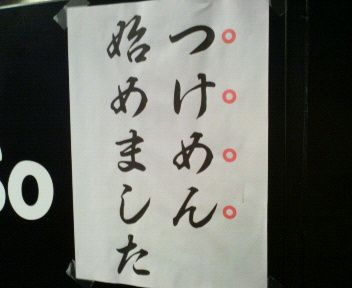 つけめん
始めました
so